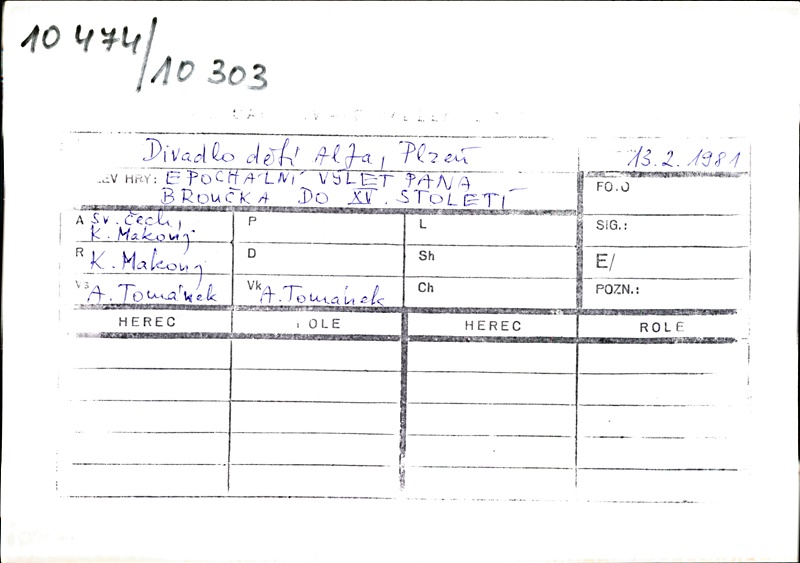 10 474/10 303
Divadlo dětí Alfa, Plzeň 13.2.1981
EV HRY: EPOCHALNÍ VÝLET PANA
BROUČKA DO XV. STOLETÍ
FO.O
A Sv. Čech, P L SIG.:
K. Makonj
R K. Makonj D Sh E/
Vs A. Tománek Vk A. Tománek Ch POZN.:
HEREC OLE HEREC ROLE